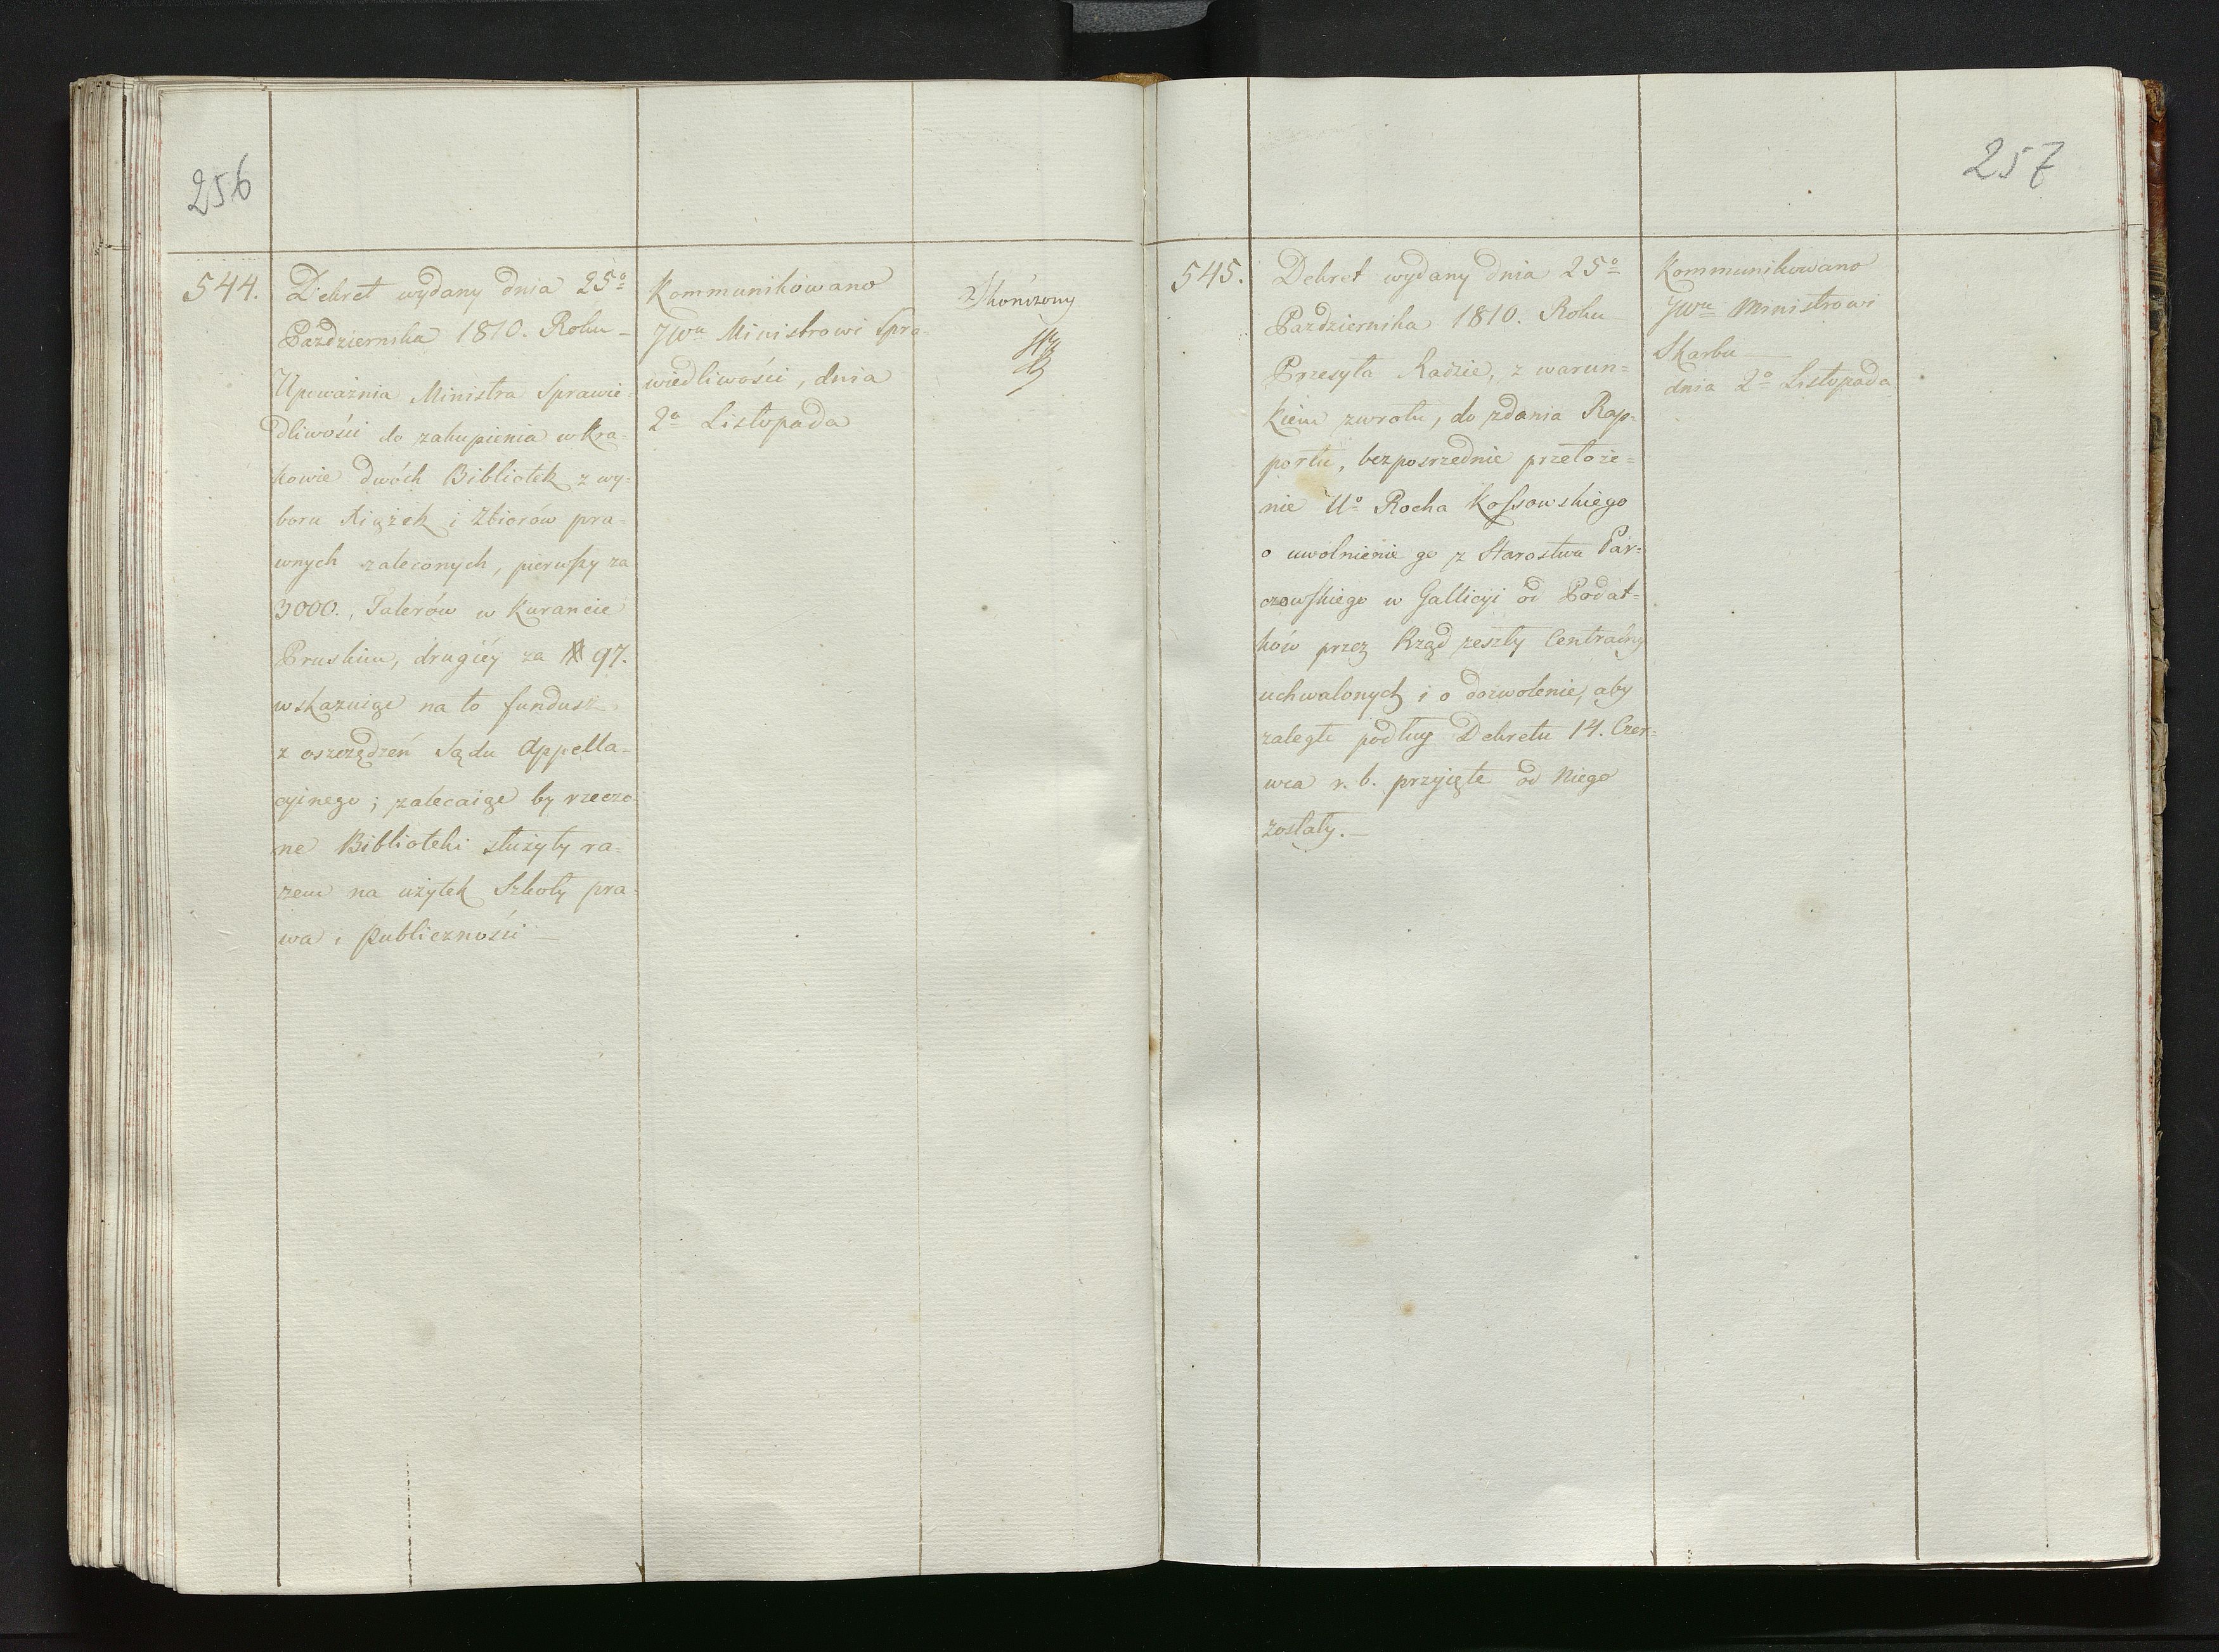 256
544.
Dekret wydany dnia 25o
Października 1810. Roku –
Upoważnia Ministra Sprawie-
dliwości do zakupienia w Kra-
kowie dwóch Bibliotek z wy-
boru Xiążek i Zbiorów pra-
wnych zaleconych, pierwszy za
3000., Talerów w Kurancie
Pruskim, drugiéy za # 97.
wskazuiąc na to fundusz
z oszczędzeń Sądu Appella-
cyinego; zalecaiąc by rzeczo-
ne Biblioteki służyły ra-
zem na użytek Szkoły pra-
wa i Publiczności –
Kommunikowano
JWu Ministrowi Spra-
wiedliwości, dnia
2o Listopada
Skończony
257
545.
Dekret wydany dnia 25o
Października 1810. Roku
Przesyła Radzie, z warun=
kiem zwrotu, do zdania Rap=
portu, bezpośrzednie przełoże=
nie Uo Rocha Kossowskiego
o uwólnienie go z Starostwa Par=
czowskiego w Gallicyi od Podat=
ków przez Rząd zeszły Centralny
uchwalonych i o dozwolenie, aby
zaległe podług Dekretu 14. Czer=
wca r. b. przyięte od Niego
zostały. –
Kommunikowano
JWu Ministrowi
Skarbu
dnia 2o Listopada